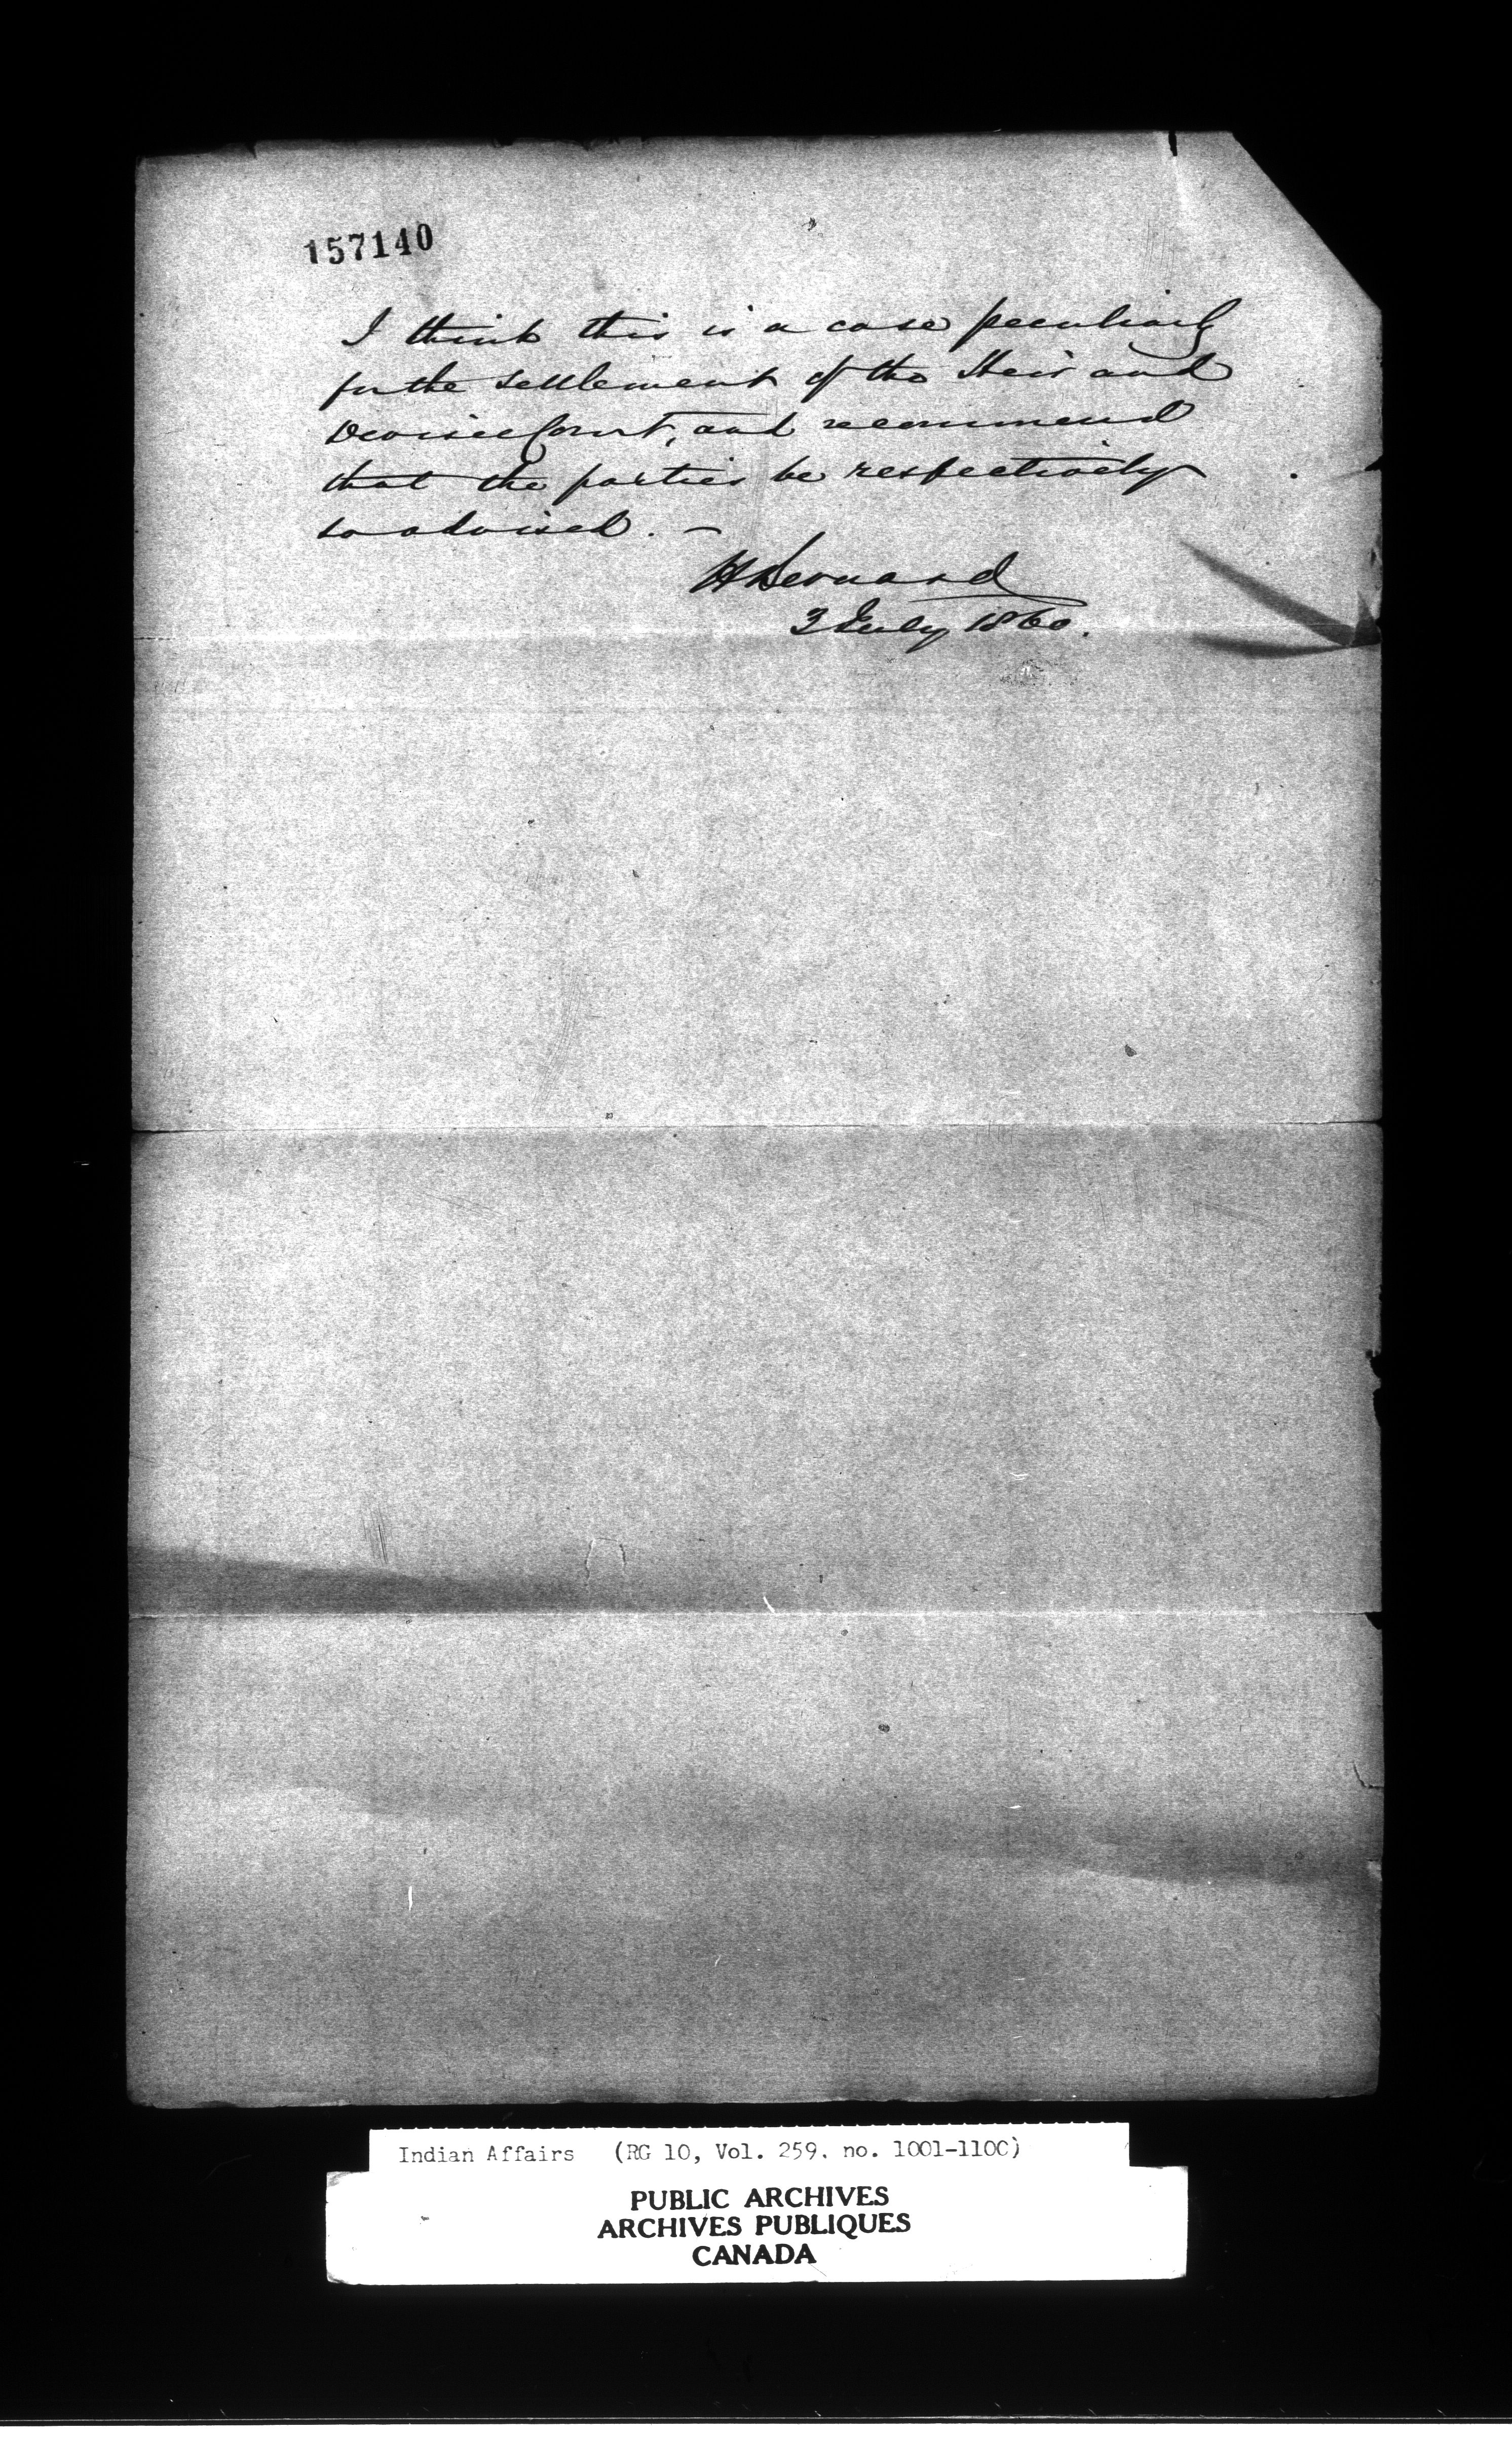 157140
I think this is a case peculiarly
for the settlement of the Heir and
Devisee Court, and recommend
that the parties be respectively
so advised. —
H Bernard
3 July 1860.
Indian Affairs (RG 10, Vol. 259. no. 1001-1100)
PUBLIC ARCHIVES
ARCHIVES PUBLIQUES
CANADA